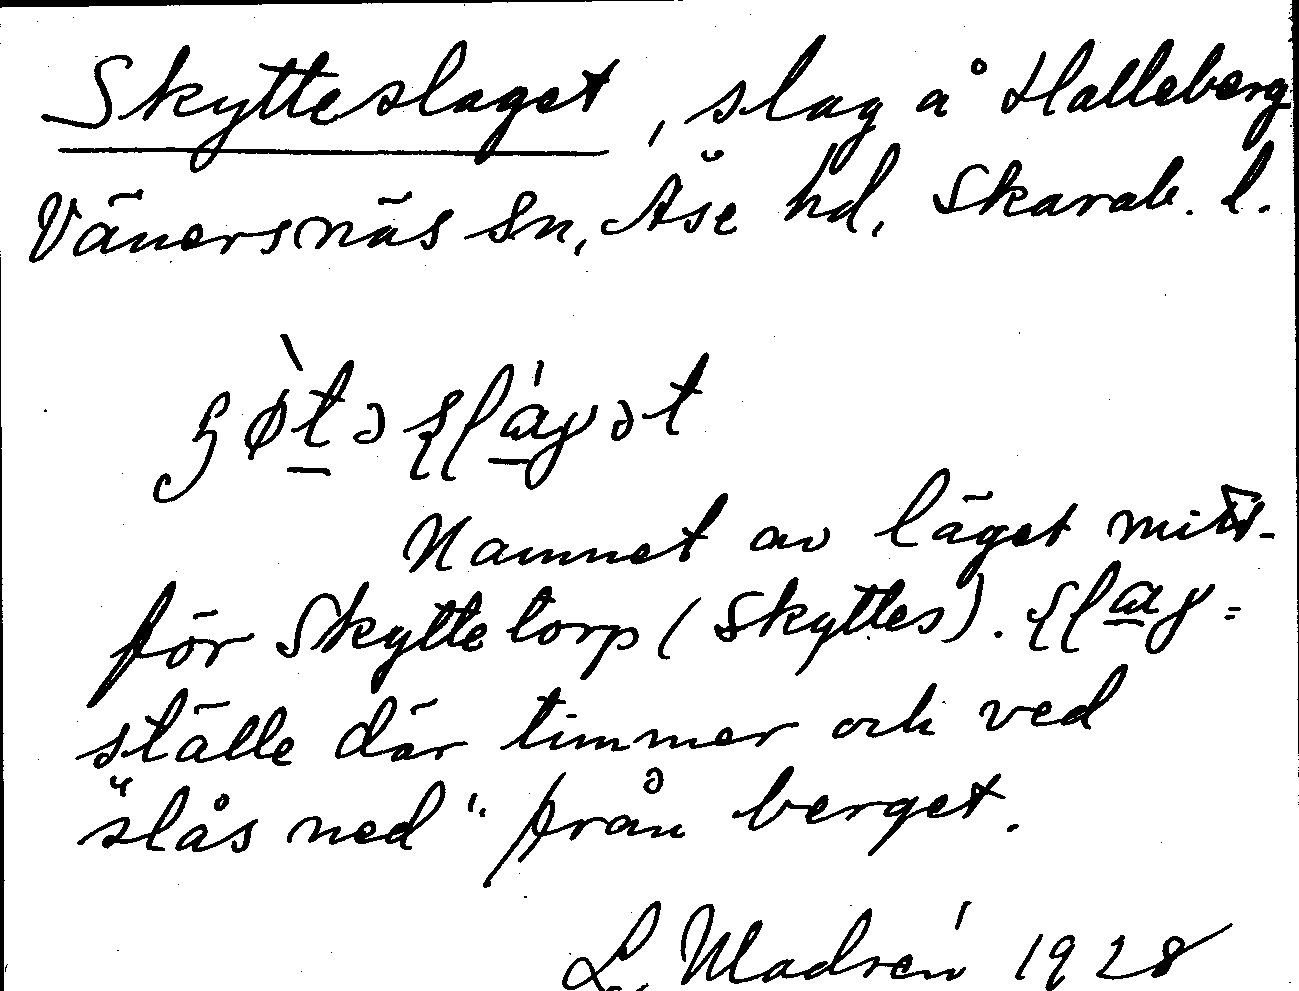 Skytteslaget, slag å Halleberg
Vänersnäs sn, Åse hd, Skarab. l.
Namnet av läget mitt-
för Skyttetorp (Skyttes). slag =
ställe där timmer och ved
"slås ned" från berget.
L. Modréen 1928